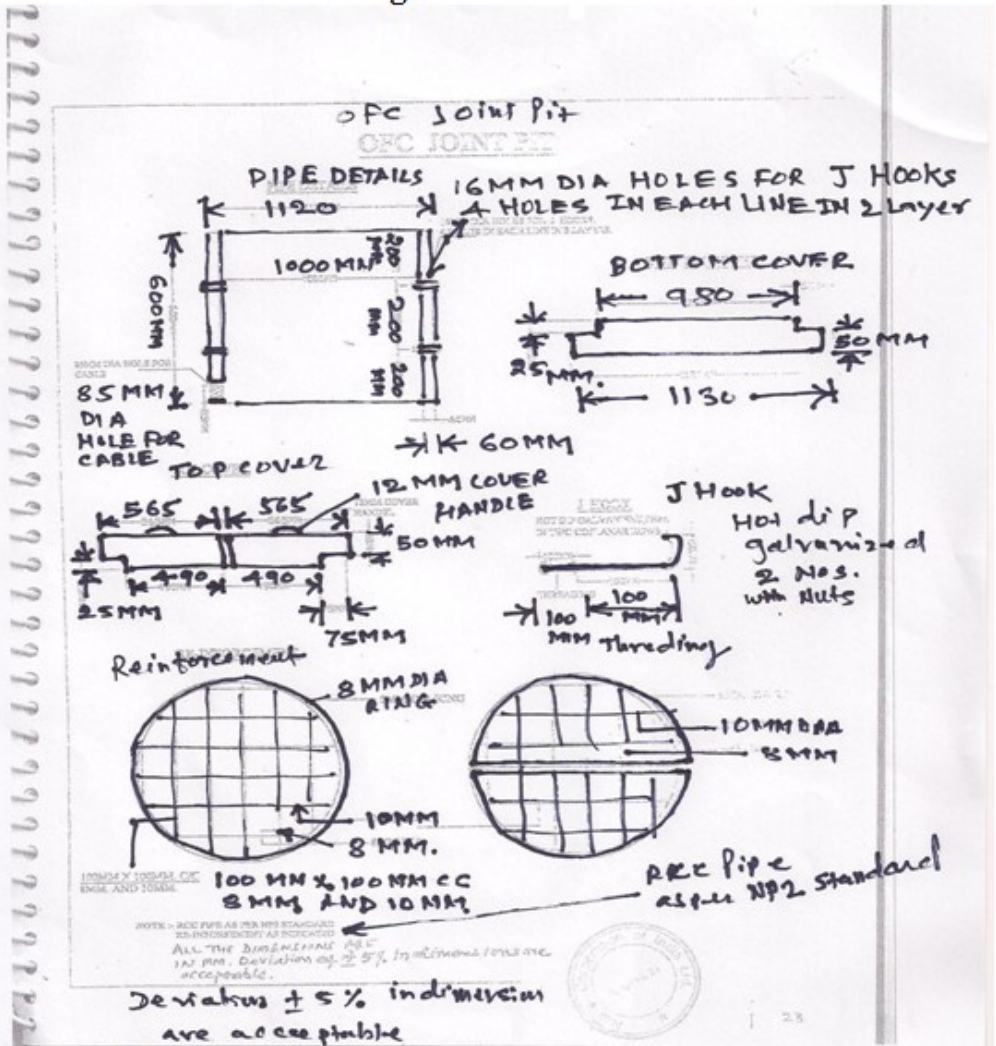 OFC Joint Pit
OFC JOINT PIT
PIPE DETAILS
1120
16MM DIA HOLES FOR J HOOKS
4 HOLES IN EACH LINE IN 2 Layer
600MM
1000MM
200 MM
200 MM
200 MM
85MM DIA HOLE FOR CABLE
85MM
DIA
HOLE FOR
CABLE
60MM
BOTTOM COVER
980
25MM.
50MM
1130
TOP COVER
565
565
12MM COVER
HANDLE
50MM
490
490
25MM
75MM
J HOOK
Hot dip
galvanized
2 Nos.
with Nuts
100
MM
100
MM
Threding
Reinforcement
8MMDIA
RING
10MM
8MM.
10MMDIA
8MM
100MM X 100MM C/C
8MM. AND 10MM.
100 MM X 100MM CC
8MM AND 10MM
RCC Pipe
as per NP2 Standard
NOTE :- RCC PIPE AS PER NP2 STANDARD
ALL THE DIMENSIONS ARE
IN MM. Deviation of ± 5% in dimensions are
acceptable.
Deviation ± 5% in dimension
are acceptable
23